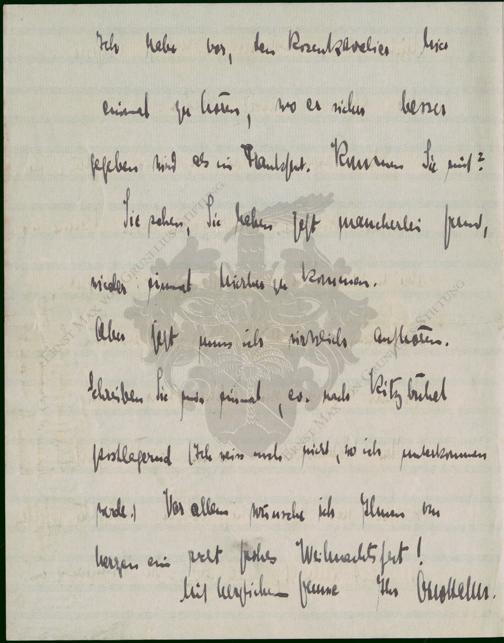 Ich habe vor, den Rosenkavalier hier
einmal zu hören, wo er sicher besser
gegeben wird als in Frankfurt. Kommen Sie mit?
Sie sehen, Sie haben jetzt mancherlei Grund,
wieder einmal hierher zu kommen.
Aber jetzt muss ich wirklich aufhören.
Schreiben Sie mir einmal, ev. nach Kitzbühel
postlagernd (Ich weiss noch nicht, wo ich unterkommen
werde.) Vor allem wünsche ich Ihnen von
Herzen ein recht frohes Weihnachtsfest!
Mit herzlichem Grusse Ihr
ERNST MAX VON GRUNELIUS-STIFTUNG
ERNST MAX VON GRUNELIUS-STIFTUNG